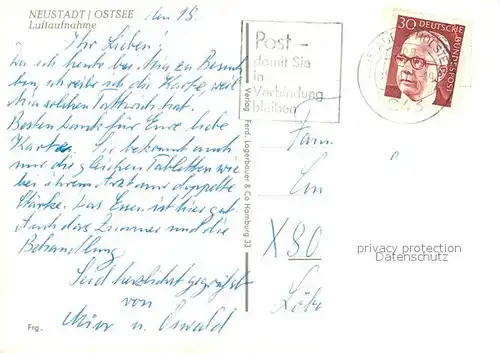 NEUSTADT / OSTSEE
Luftaufnahme
den 15.
Ihr Lieben!
Da ich heute bei Mia zu Besuch
bin, schreibe ich die Karte, weil
Mia solchen Tatterich hat.
Besten Dank für Eure liebe
Karte. Sie bekommt auch
nur die gleichen Tabletten wie
bei ihrem Arzt nur doppelte
Stärke. Das Essen ist hier gut.
Auch das Zimmer und die
Behandlung.
Seid herzlichst gegrüßt
von
u. Oswald
Frg.
Verlag Ferd. Lagerbauer & Co Hamburg 33
Post -
damit Sie
in
Verbindung
bleiben
30 DEUTSCHE BUNDESPOST
Fam.
X 80
privacy protection
Datenschutz